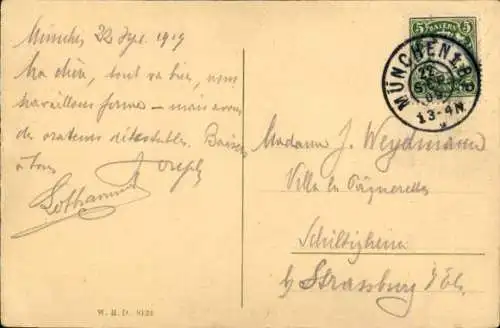 München 22 Sept. 1909
Ma chère, tout va bien, nous
travaillons ferme – mais avons
des orateurs détestables. Baisers
à tous Joseph
5 BAYERN 5
MÜNCHEN 1.B.P.
22
SEP
09
3-4N
Madame J. Weydmann
Villa les Pâquerettes
Schiltigheim
b/ Strassburg i/ Els.
W. H. D. 8123